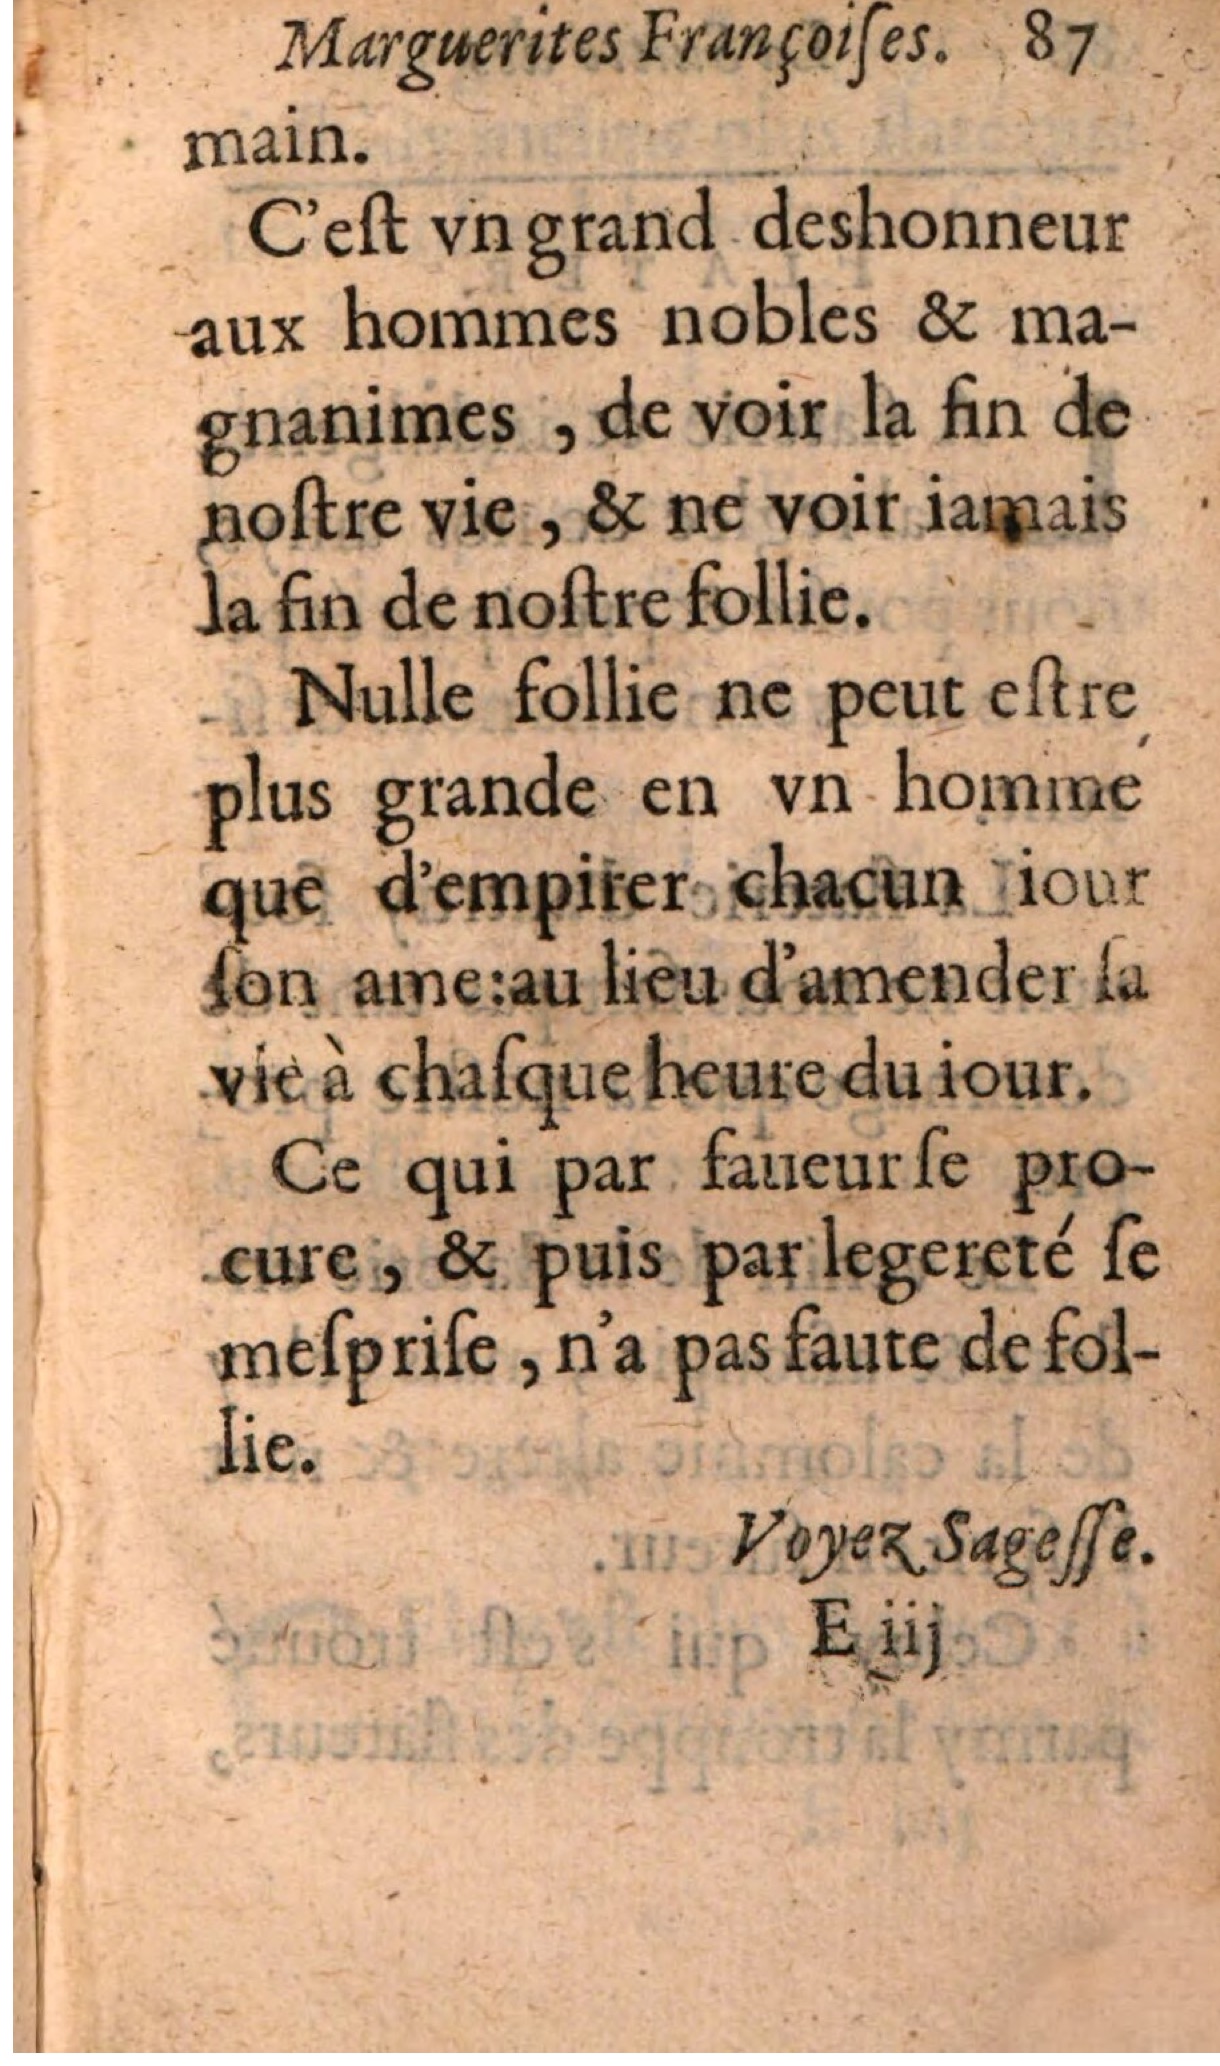 Marguerites Françoiſes. 87
main.
C'eſt vn grand deshonneur
aux hommes nobles & ma-
gnanimes, de voir la fin de
noſtre vie, & ne voir iamais
la fin de noſtre follie.
Nulle follie ne peut eſtre
plus grande en vn homme
que d'empirer chacun iour
ſon ame: au lieu d'amender ſa
vie à chaſque heure du iour.
Ce qui par faueur ſe pro-
cure, & puis par legereté ſe
meſpriſe, n'a pas faute de fol-
lie.
Voyez Sageſſe.
E iij